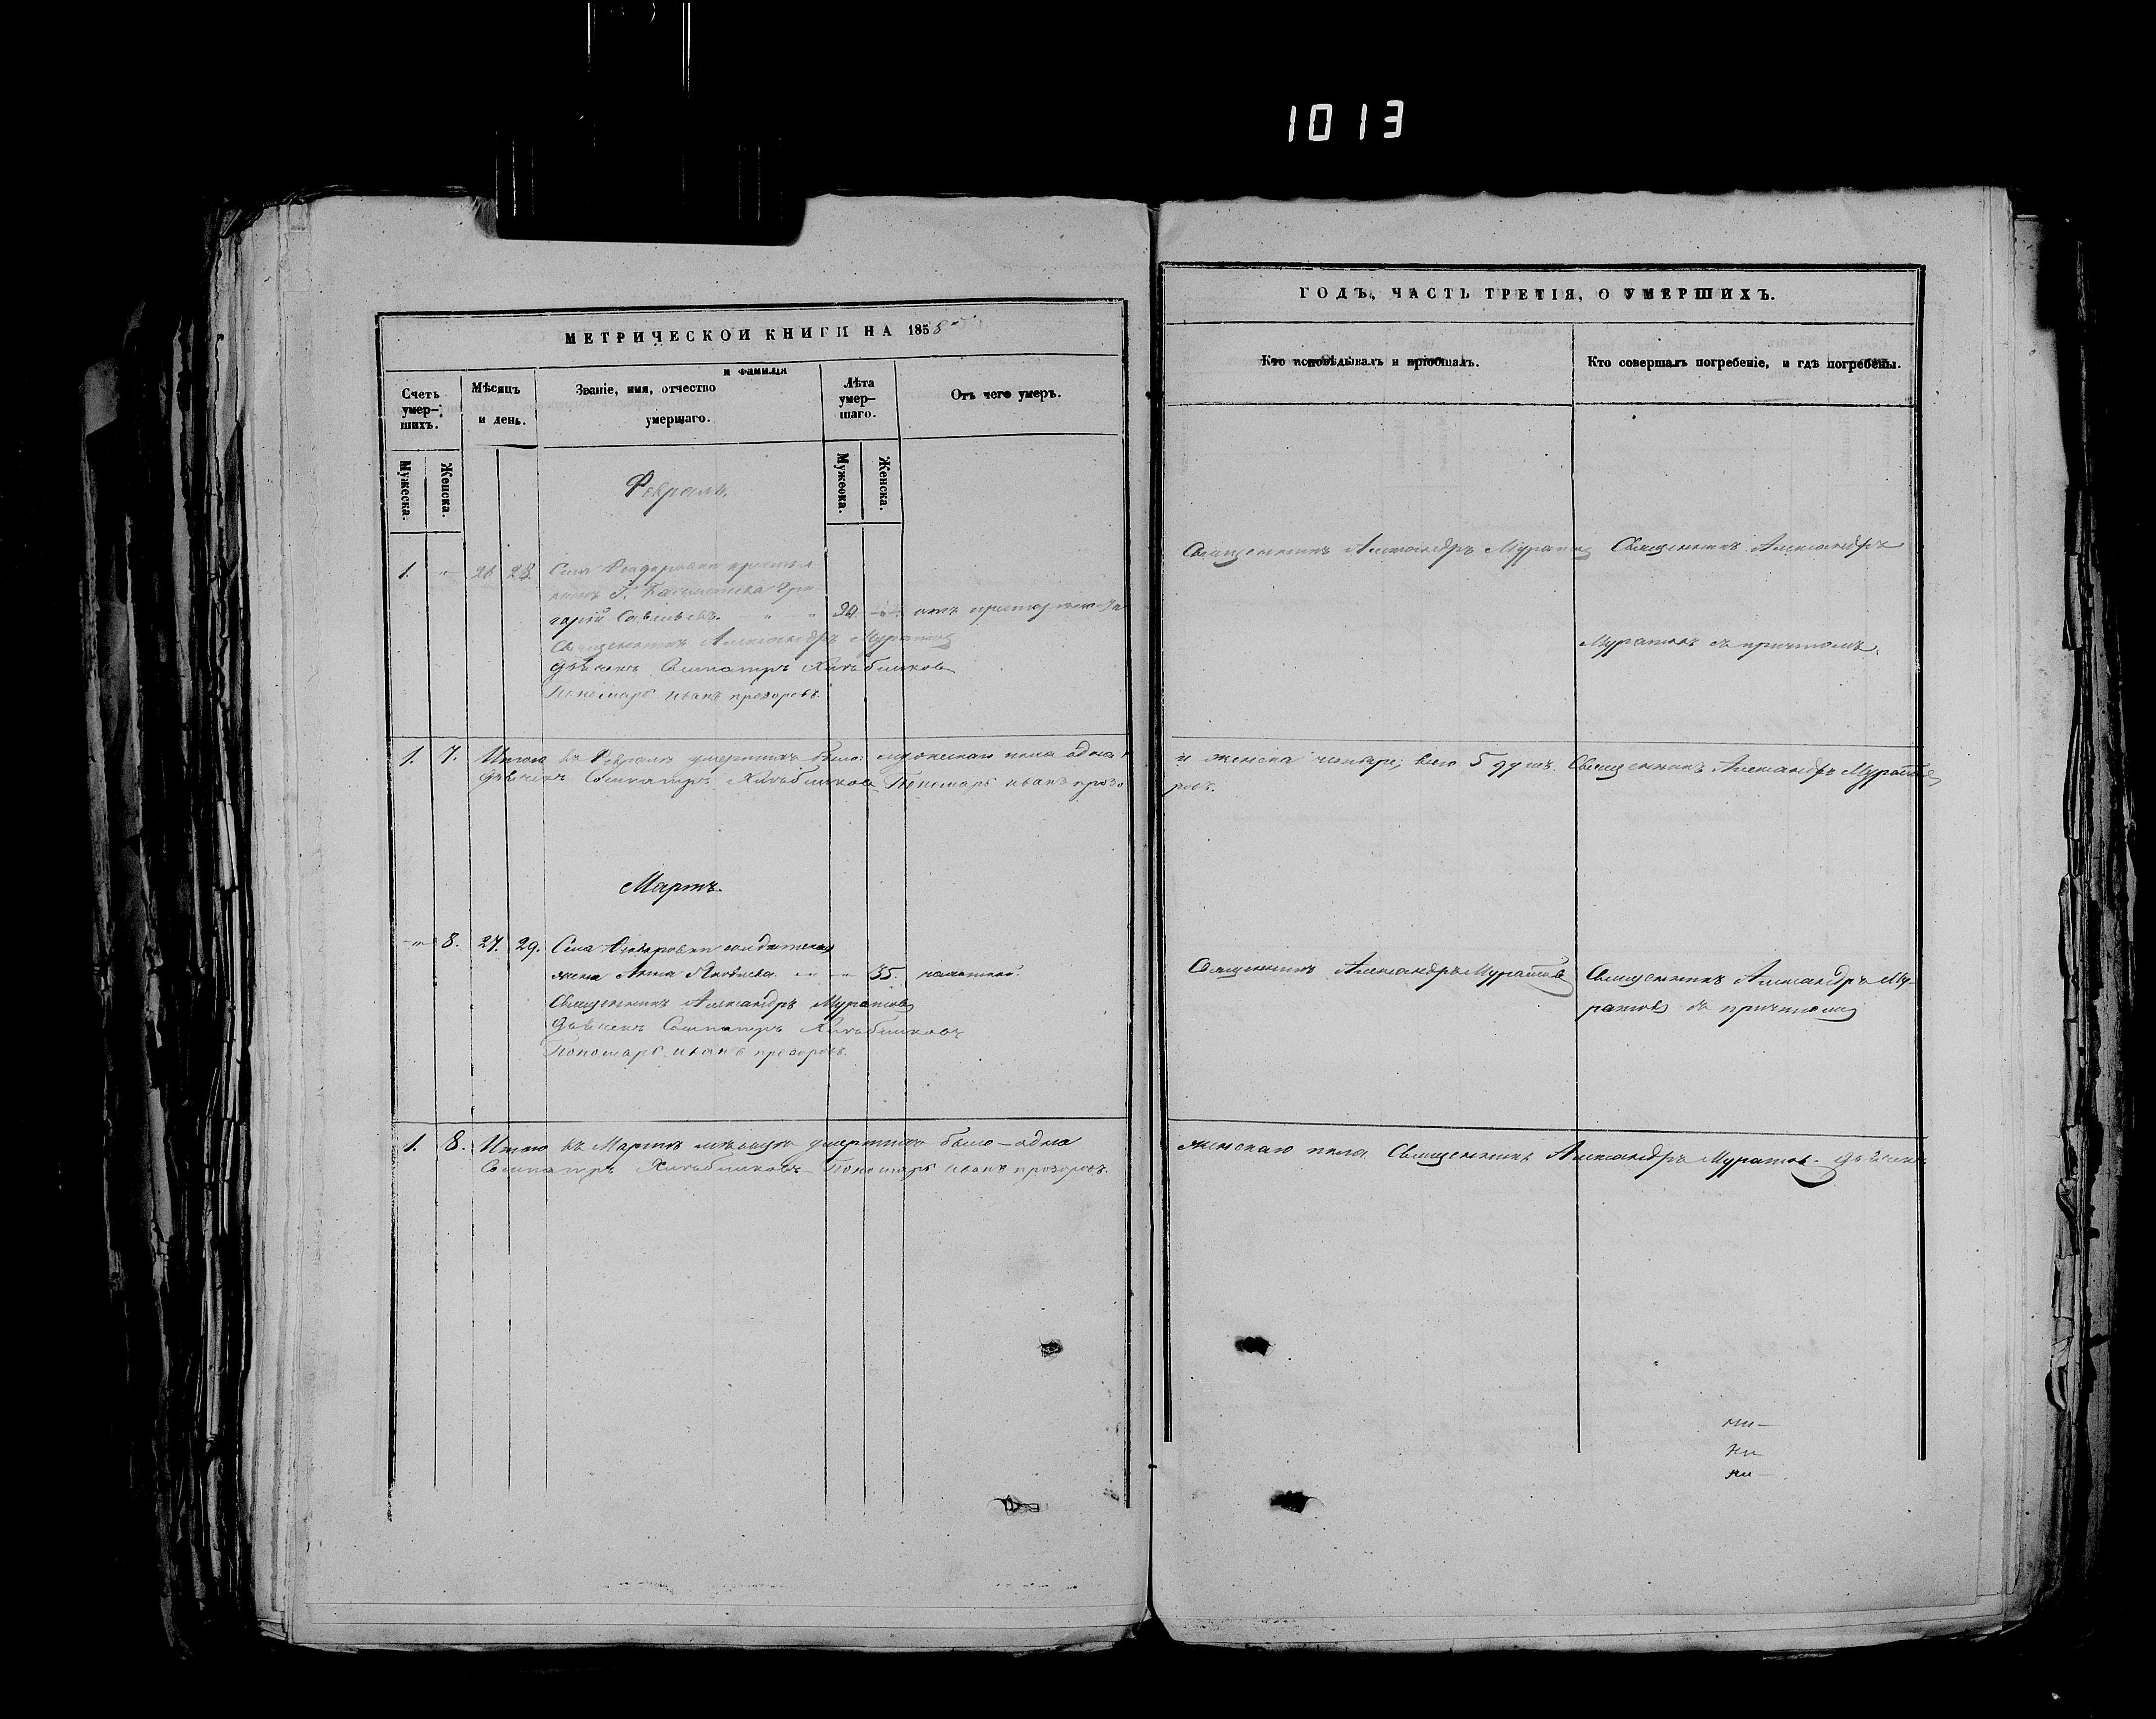 1013
МЕТРИЧЕСКОЙ КНИГИ НА 1858
Счетъ умер-шихъ.
Мѣсяцъ и день.
Званіе, имя, отчество и фамилія умершаго.
Лѣта умер-шаго.
Отъ чего умеръ.
Мужеска.
Женска.
Мужеска.
Женска.
Февраль.
1. 26 28. Села Федоровки крестья
Григорій Савельевъ.
Священникъ Александръ Муратовъ
Дьячекъ Сосипатръ
Пономарь Иванъ Прозоровъ.
1. 7. Итого въ Февралѣ умершихъ было: мужескаго пола одна
Дьячекъ Сосипатръ Пономарь Иванъ Прозо
Мартъ.
8. 27. 29. Села Федоровки солдатская
жена Анна Яковлева 35.
Священникъ Александръ Муратовъ
Дьячекъ Сосипатръ
Пономарь Иванъ Прозоровъ.
1. 8. Итого въ Мартѣ мѣсяцѣ умершихъ было – одна
Сосипатръ Пономарь Иванъ Прозоровъ.
ГОДЪ, ЧАСТЬ ТРЕТІЯ, О УМЕРШИХЪ.
Кто исповѣдывалъ и пріобщалъ.
Кто совершалъ погребеніе, и гдѣ погребены.
Священникъ Александръ Муратовъ
Священникъ Александръ
Муратовъ съ причтомъ.
и женска четыре; всего 5 душъ. Священникъ Александръ Муратовъ
ровъ.
Священникъ Александръ Муратовъ
Священникъ Александръ Му-
ратовъ съ причтомъ
женскаго пола Священникъ Александръ Муратовъ. Дьячекъ